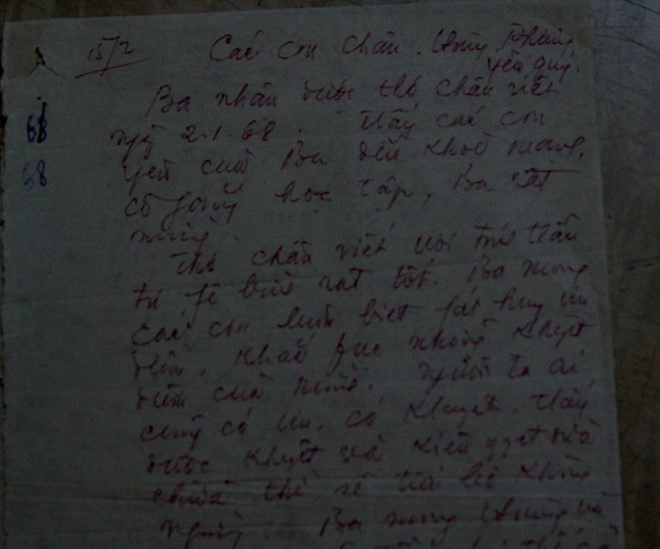 15/2 Các con Chấn, Hùng, Phùng,
yêu quý.
Ba nhận được thơ Chấn viết
68 ngày 2.1.68. Thấy các con
68 yêu của Ba đều khoẻ mạnh,
cố gắng học tập, Ba rất
mừng.
Thơ Chấn viết với tinh thần
tự phê bình rất tốt. Ba mong
các con luôn biết phát huy ưu
điểm, khắc phục những khuyết
điểm của mình. Người ta ai
cũng có ưu, có khuyết. Thấy
được khuyết và kiên quyết sửa
chữa thì sẽ tiến bộ không
ngừng. Ba mong và